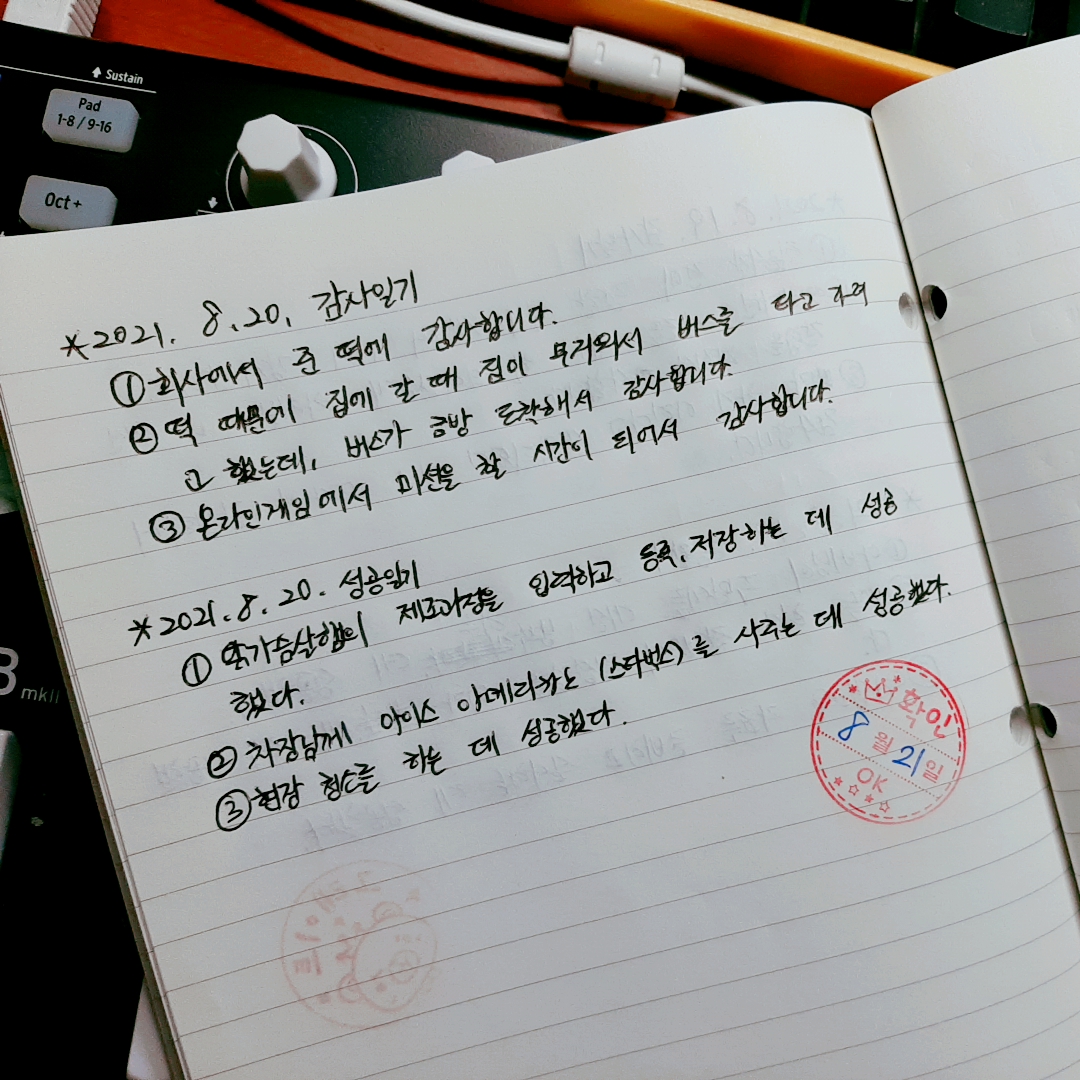 Sustain
Pad
1-8 / 9-16
Oct +
mkII
*2021. 8. 20. 감사일기
① 회사에서 준 떡에 감사합니다.
② 떡 때문에 집에 갈 때 짐이 무거워서 버스를 타고 가려
고 했는데, 버스가 금방 도착해서 감사합니다.
③ 온라인게임에서 미션을 할 시간이 되어서 감사합니다.
*2021. 8. 20. 성공일기
① 닭가슴살햄의 제조과정을 입력하고 등록, 저장하는 데 성공
했다.
② 차장님께 아이스 아메리카노 (스타벅스)를 사주는 데 성공했다.
③ 현장 청소를 하는 데 성공했다.
확인
8월 21일
OK